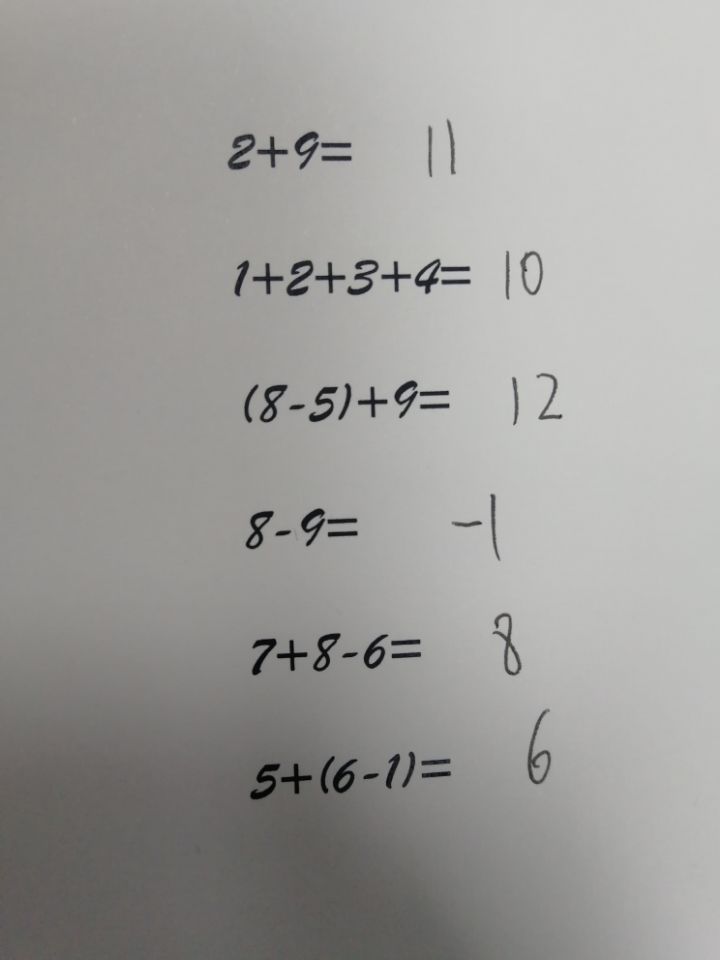 2+9= 11
1+2+3+4= 10
(8-5)+9= 12
8-9= -1
7+8-6= 8
5+(6-1)= 6